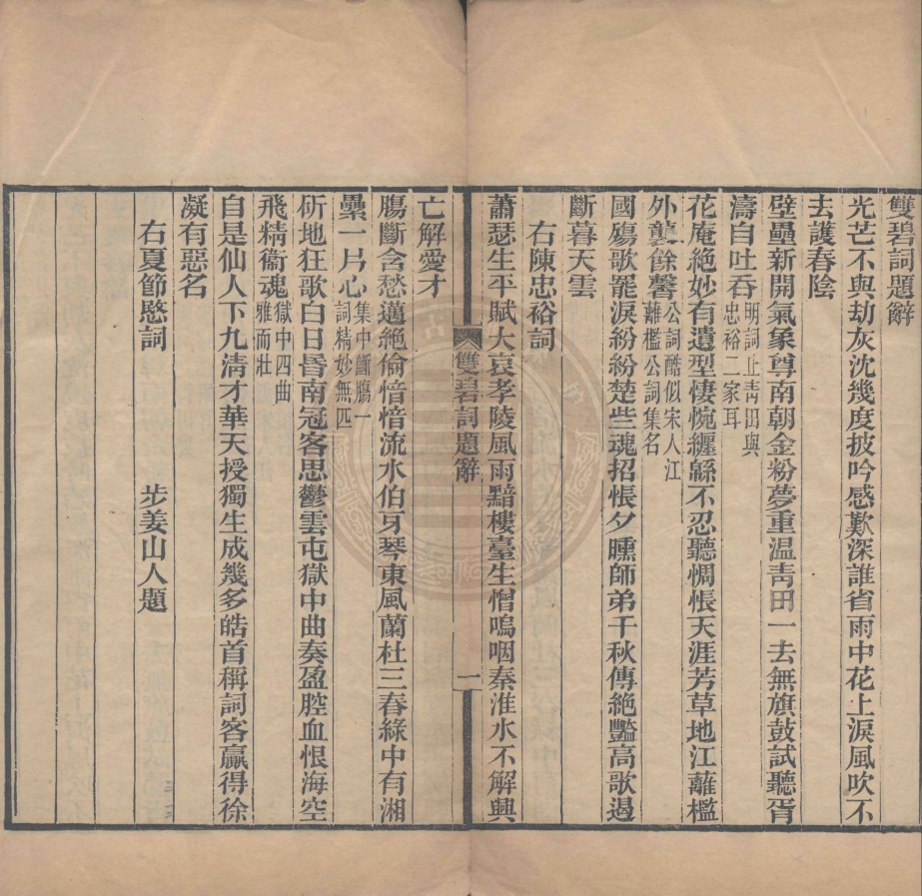 雙碧詞題辭
光芒不與劫灰沈幾度披吟感歎深誰省雨中花上淚風吹不
去護春陰
壁壘新開氣象尊南朝金粉夢重温靑田一去無旗鼓試聽胥
濤自吐吞明詞止靑田與忠裕二家耳
花庵絶妙有遺型悽惋纏緜不忍聽惆悵天涯芳草地江蘺檻
外襲餘馨公詞酷似宋人江蘺檻公詞集名
國殤歌罷淚紛紛楚些魂招悵夕曛師弟千秋傳絶豔高歌遏
斷暮天雲
右陳忠裕詞
蕭瑟生平賦大哀孝陵風雨黯樓臺生憎嗚咽秦淮水不解興
雙碧詞題辭
一
亡解愛才
膓斷含愁邁絶倫愔愔流水伯牙琴東風蘭杜三春綠中有湘
纍一片心集中斷膓一詞精妙無匹
斫地狂歌白日昏南冠客思鬱雲屯獄中曲奏盈腔血恨海空
飛精衞魂獄中四曲雅而壯
自是仙人下九淸才華天授獨生成幾多皓首稱詞客贏得徐
凝有惡名
右夏節愍詞
步姜山人題